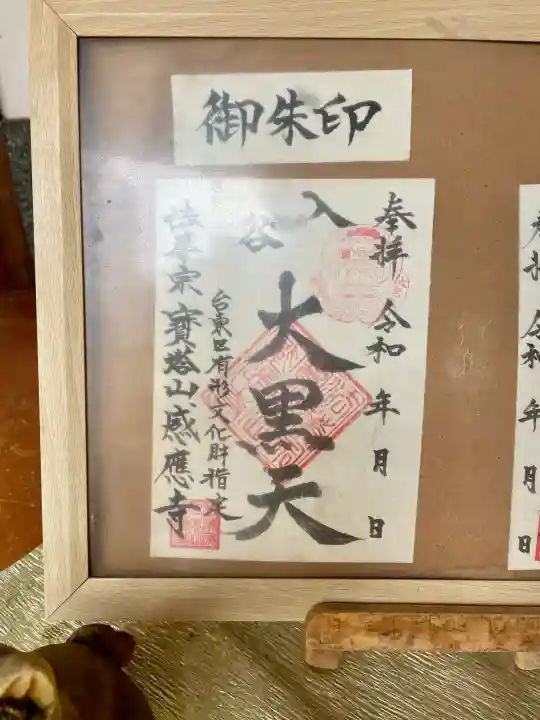 御朱印
奉拝 令和 年 月 日
入谷
大黒天
台東区有形文化財指定
宗 寶塔山感應寺
奉拝 令和 年 月 日